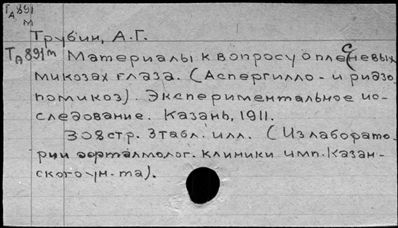 TA 891
м
Трубин, А.Г.
TA891m Материалы к вопросу о плесневых
микозах глаза. (Аспергилло- и ридзо
помикоз). Экспериментальное ис-
следование. Казань, 1911.
308 стр. 3 табл. илл. (Из лаборато-
рии офталмолог. клиники имп. Казан-
ского ун-та).